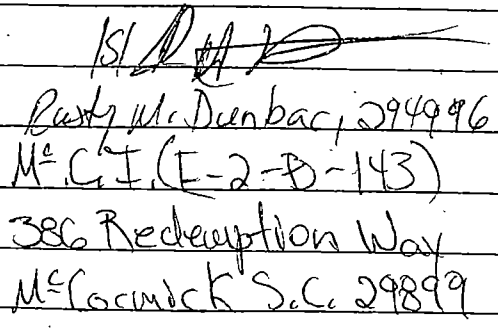 /s/
Rusty M. Dunbar, 294996
Mc.C.I. (E-2-B-143)
386 Redemption Way
McCormick S.C. 29899